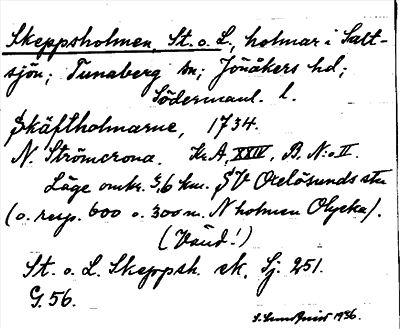 Skeppsholmen, St. o. L., holmar i Salt-
sjön; Tunaberg sn; Jönåkers hd;
Södermanl. l.
Skäftholmarne, 1734.
N. Strömcrona. Kr. A, XXIV, B. N:o II.
Läge omkr. 5,6 km. SV Oxelösunds stn
(o. resp. 600 o. 300 m. N holmen Olycka).
(Vänd!)
St. o. L. Skeppsh. ek. Sj. 251.
G. 56.
1936.